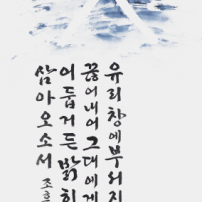 유리창에부서지
끊어내어그대에게
어둡거든밝히
삼아오소서
조